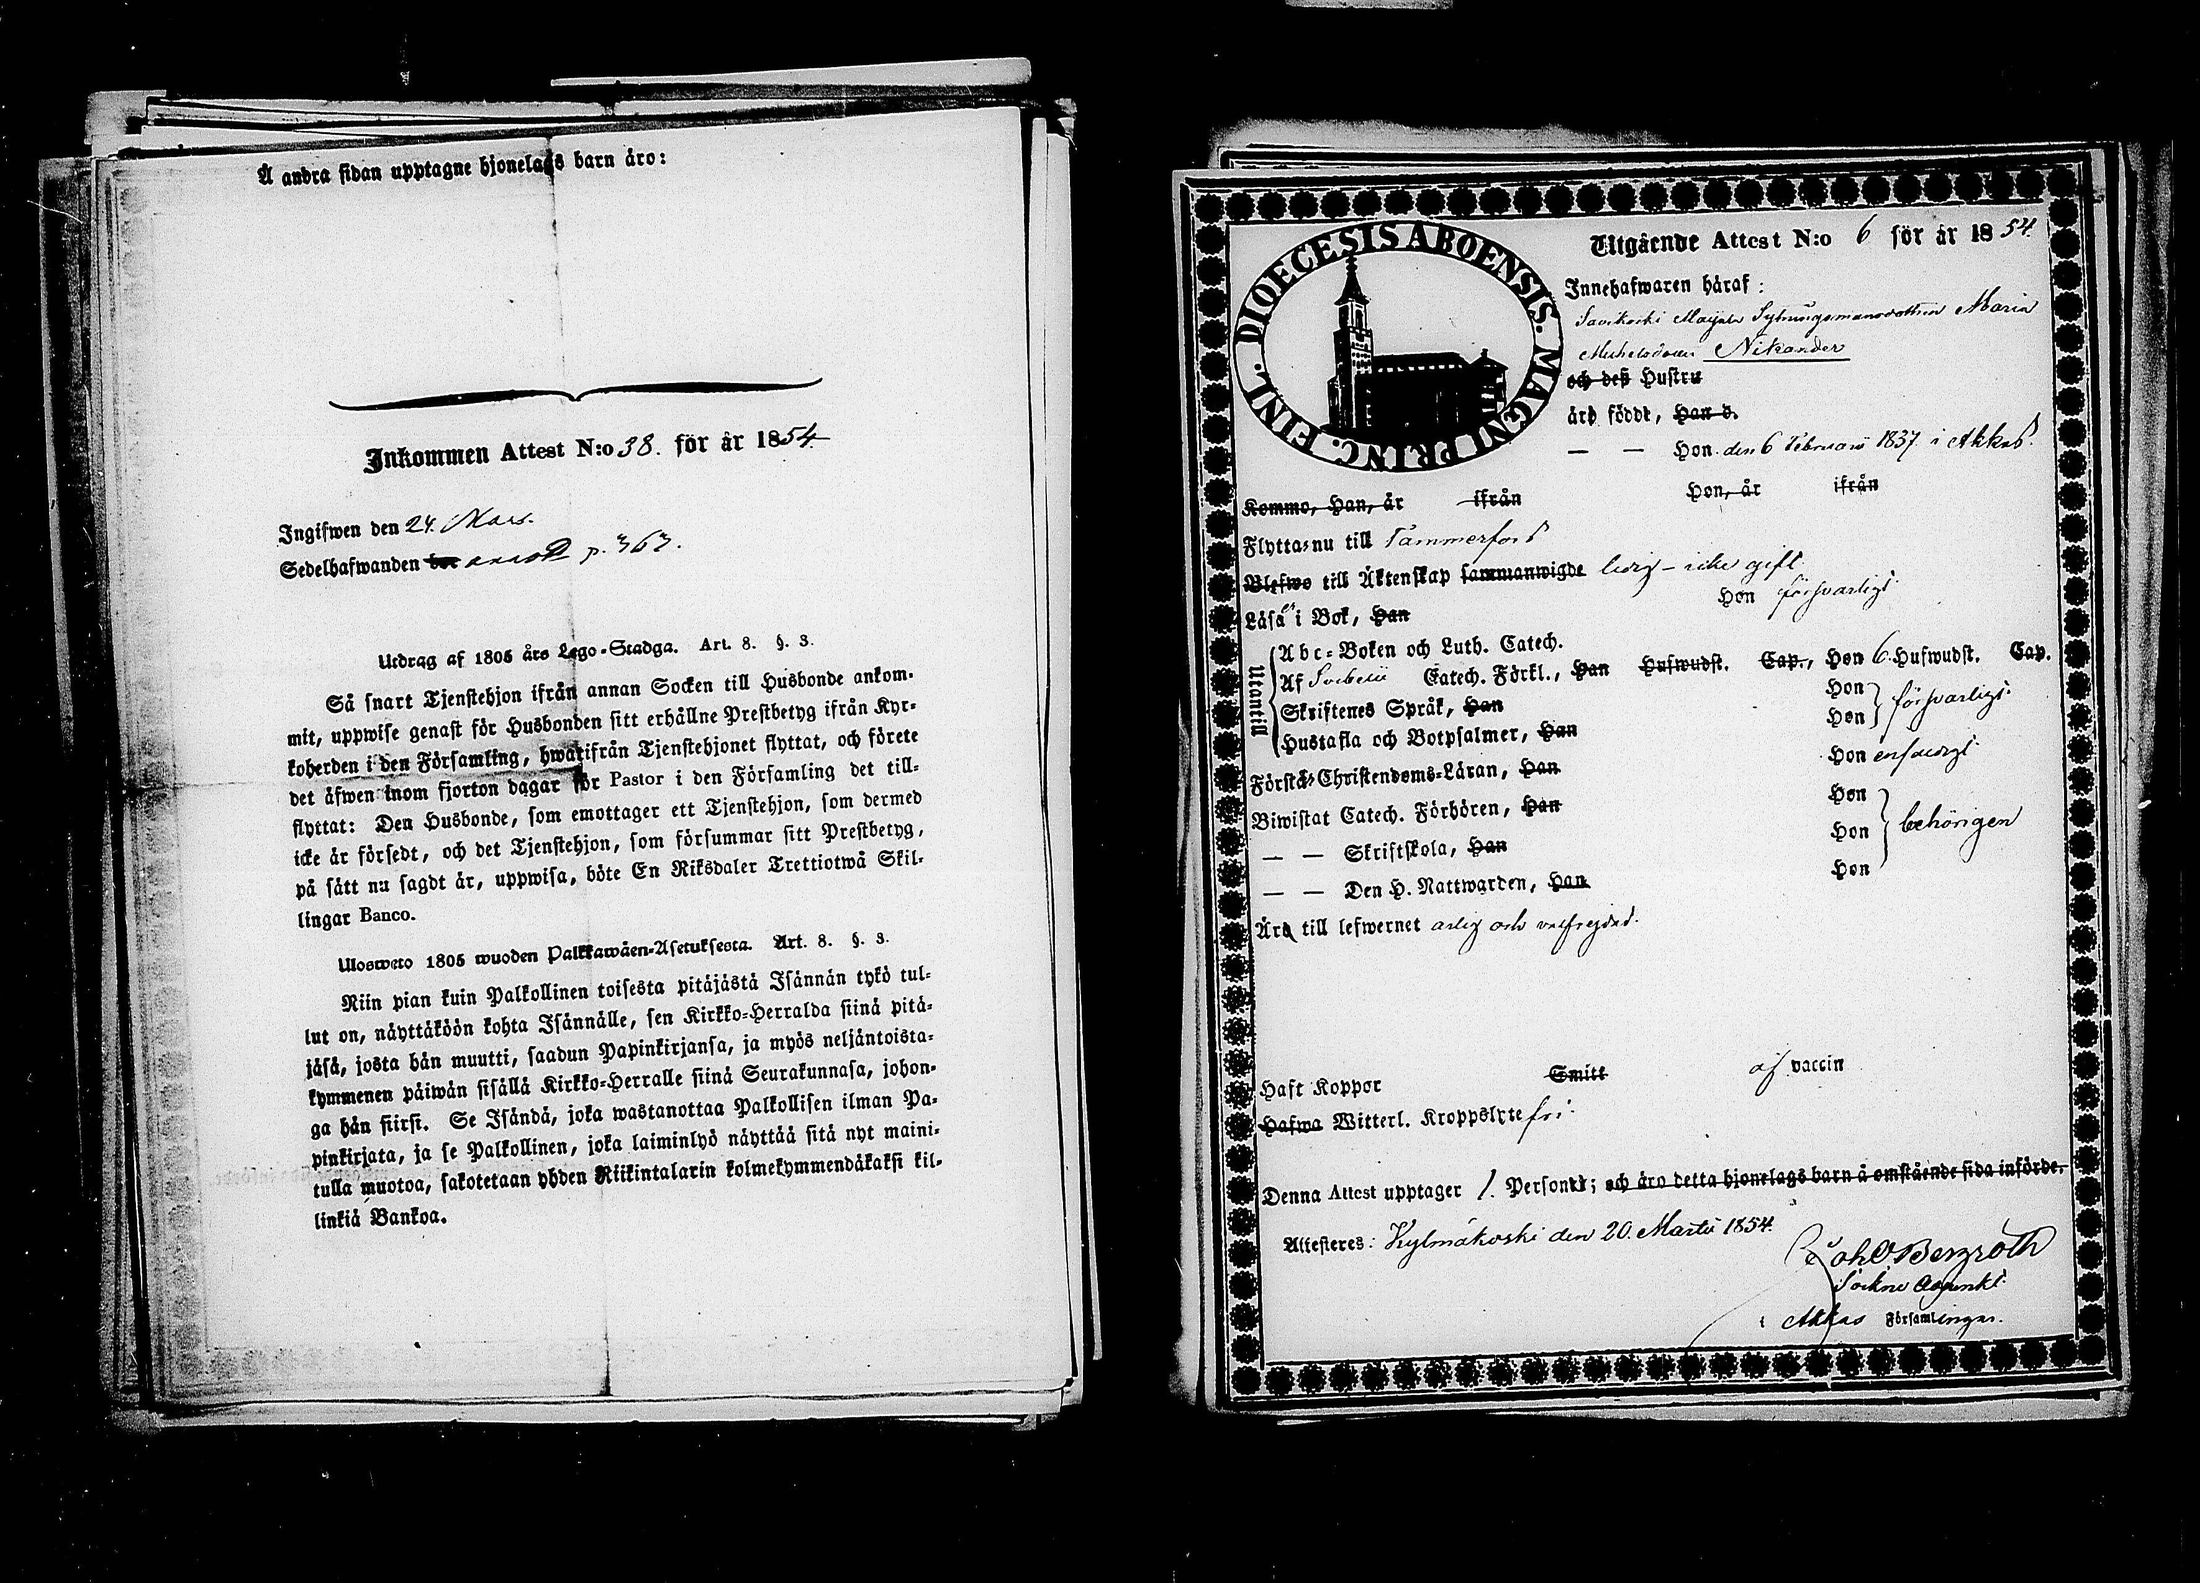 Å andra sidan upptagne hjonelags barn äro:
Inkommen Attest N:o 38. för år 1854
Ingifwen den 24. Mars.
Sedelhafwanden bor annot p. 363.
Utdrag af 1805 års Lego-Stadga. Art. 8. §. 3.
Så snart Tjenstehjon ifrån annan Socken till Husbonde ankom-
mit, uppwise genast för Husbonden sitt erhållne Prestbetyg ifrån Kyr-
koherden i den Församling, hwarifrån Tjenstehjonet flyttat, och förete
det äfwen inom fjorton dagar för Pastor i den Församling det till-
flyttat: Den Husbonde, som emottager ett Tjenstehjon, som dermed
icke är försedt, och det Tjenstehjon, som försummar sitt Prestbetyg,
på sätt nu sagdt är, uppwisa, böte En Riksdaler Trettiotwå Skil-
lingar Banco.
Ulosweto 1805 wuoden Palkkawäen-Asetuksesta. Art. 8. §. 3.
Niin pian kuin Palkollinen toisesta pitäjästä Isännän tykö tul-
lut on, näyttäköön kohta Isännälle, sen Kirkko-Herralda siinä pitä-
jäsä, josta hän muutti, saadun Papinkirjansa, ja myös neljäntoista-
kymmenen päiwän sisällä Kirkko-Herralle siinä Seurakunnasa, johon-
ga hän siirsi. Se Isändä, joka wastanottaa Palkollisen ilman Pa-
pinkirjata, ja se Palkollinen, joka laiminlyö näyttää sitä nyt maini-
tulla muotoa, sakotetaan yhden Riikintalarin kolmekymmendäkaksi kil-
linkiä Bankoa.
DIOECESIS ABOENSIS. MAGNI PRINC. FINL.
Utgående Attest N:o 6 för år 1854.
Innehafwaren häraf:
Savikoski Maijala Sytningsmansdottren Maria
Michelsdotter Nikander
och deß Hustru
äro födde, Han d.
— — Hon den 6 Februarii 1837 i Akkas.
Komme, Han, år ifrån Hon, år ifrån
Flytta nu till Tammerfors
Blefwo till Äktenskap sammanwigde ledig – icke gift.
Läsa i Bok, Han Hon försvarligt
Utantill
Abc-Boken och Luth. Catech.
Af Svebelii Catech. Förkl., Han Hufwudst. Cap., Hon 6 Hufwudst. Cap.
Skriftenes Språk, Han Hon
Hustafla och Botpsalmer, Han Hon försvarligt.
Förstå Christendoms-Läran, Han Hon enfaldigt.
Biwistat Catech. Förhören, Han Hon
— — Skriftskola, Han Hon behörigen
— — Den H. Nattwarden, Han Hon
Äro till lefwernet ärlig och välfrejdad.
Haft Koppor Smitt af vaccin
Hafwa Witterl. Kroppslyte fri.
Denna Attest upptager 1. Personer; och äro detta hjonelags barn å omstående sida införde.
Attesteres: Kylmäkoski den 20. Martii 1854.
Joh. O. Bergroth
Sockne Adjunkt
i Akkas Församlingar.